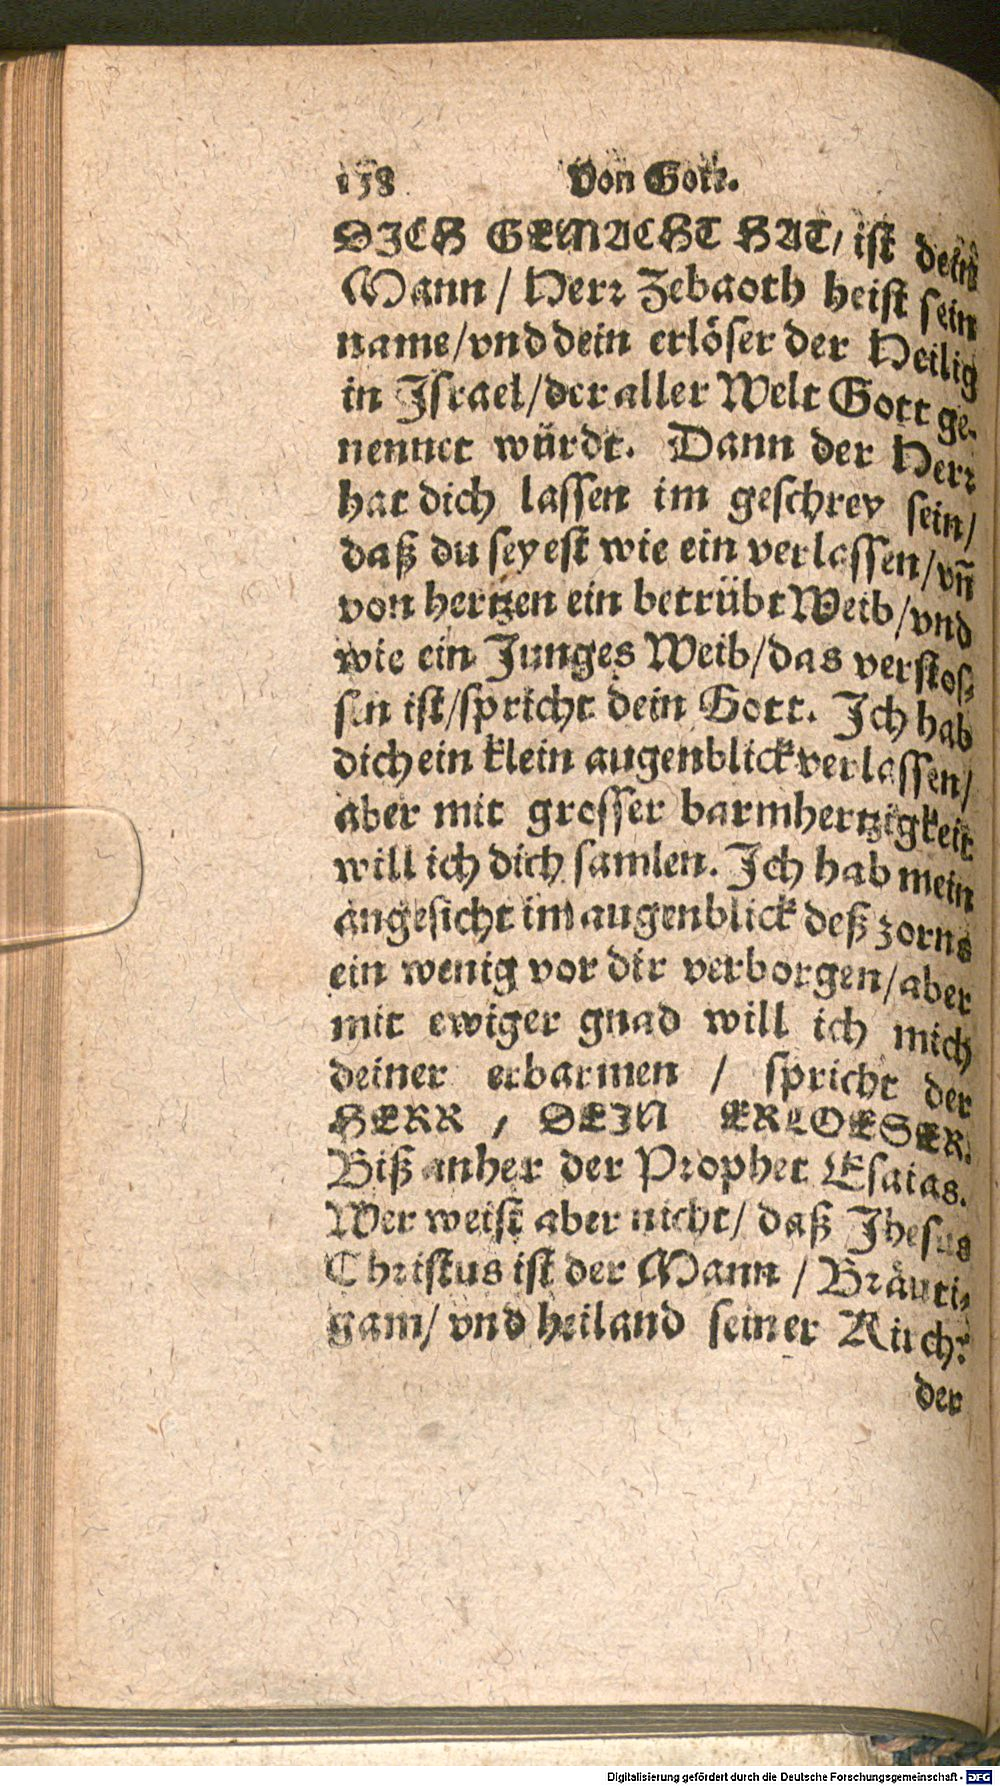 158 Von Gott.
DICH GEMACHT HAT/ ist dein
Mann / Herr Zebaoth heist sein
name/vnd dein erlöser der Heilig
in Israel/der aller Welt Gott ge-
nennet würdt. Dann der Herr
hat dich lassen im geschrey sein/
daß du seyest wie ein verlassen/vñ
von hertzen ein betrübt Weib/vnd
wie ein Junges Weib/das verstos-
sen ist/spricht dein Gott. Ich hab
dich ein klein augenblick verlassen/
aber mit grosser barmhertzigkeit
will ich dich samlen. Ich hab mein
angesicht im augenblick deß zorns
ein wenig vor dir verborgen/aber
mit ewiger gnad will ich mich
deiner erbarmen / spricht der
HERR / DEIN ERLOESER.
Biß anher der Prophet Esaias.
Wer weist aber nicht/ daß Jhesus
Christus ist der Mann / Bräuti-
gam/ vnd heiland seiner Kirch?
der
Digitalisierung gefördert durch die Deutsche Forschungsgemeinschaft - DFG